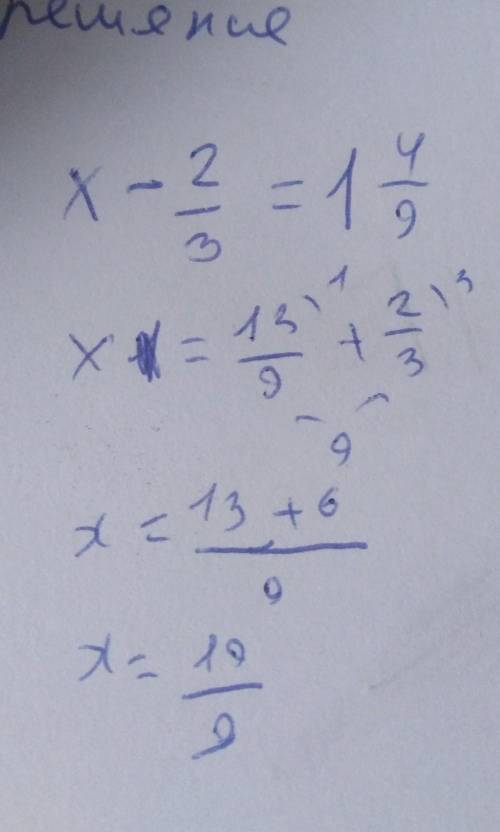 решение
x - 2/3 = 1 4/9
x = 13/9 \1 + 2/3 \3
9
x = (13 + 6)/9
x = 19/9